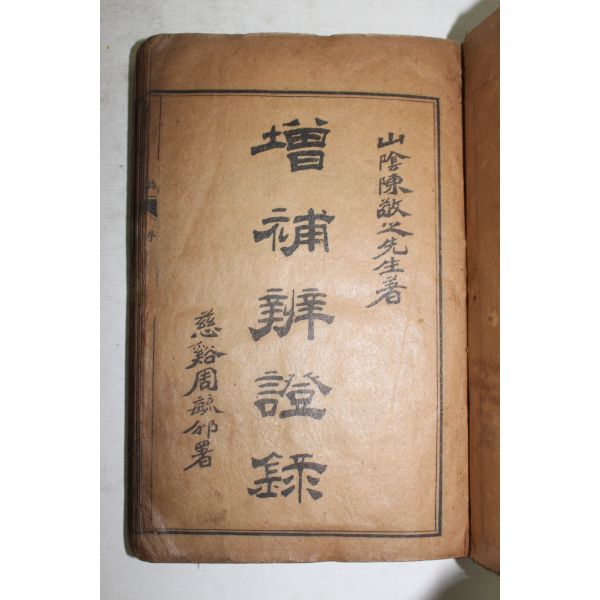 山陰陳敬之先生著
增補辨證錄
慈谿周毓邠署
序